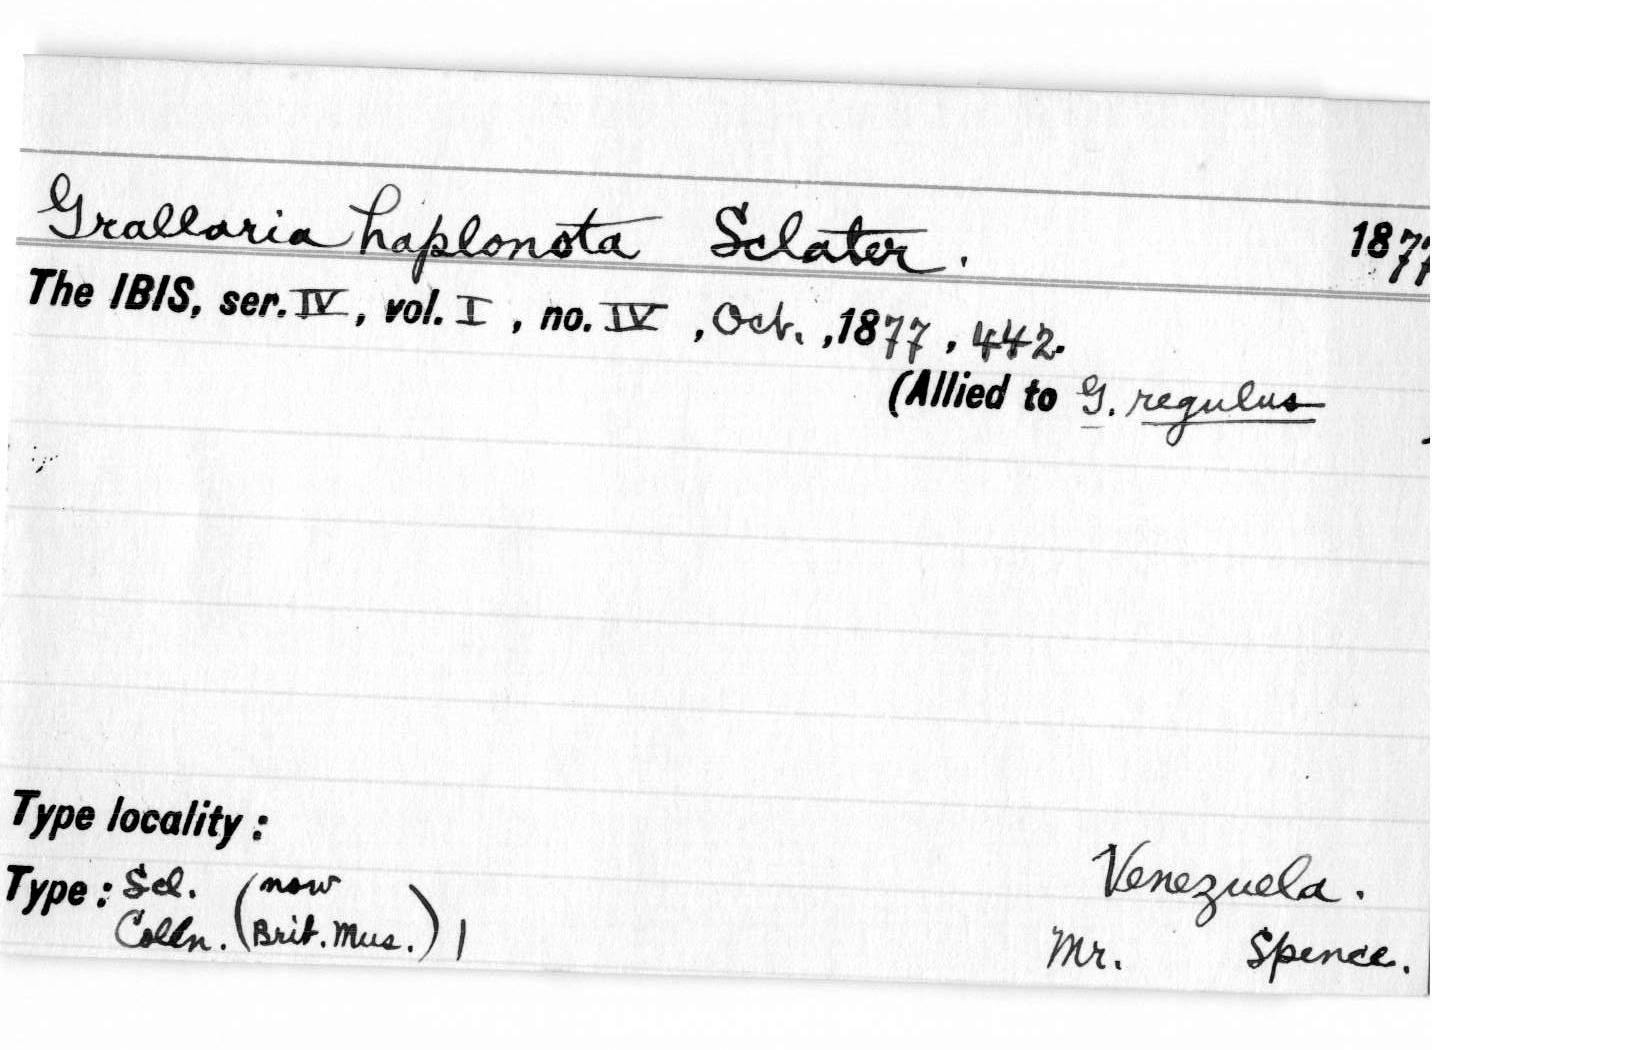 Grallaria haplonota Sclater. 1877
The IBIS, ser. IV, vol. I, no. IV, Oct., 1877, 442.
(Allied to G. regulus
Type locality:
Venezuela.
Type: Scl. (now
Colln. Brit. Mus.) 1
Mr. Spence.